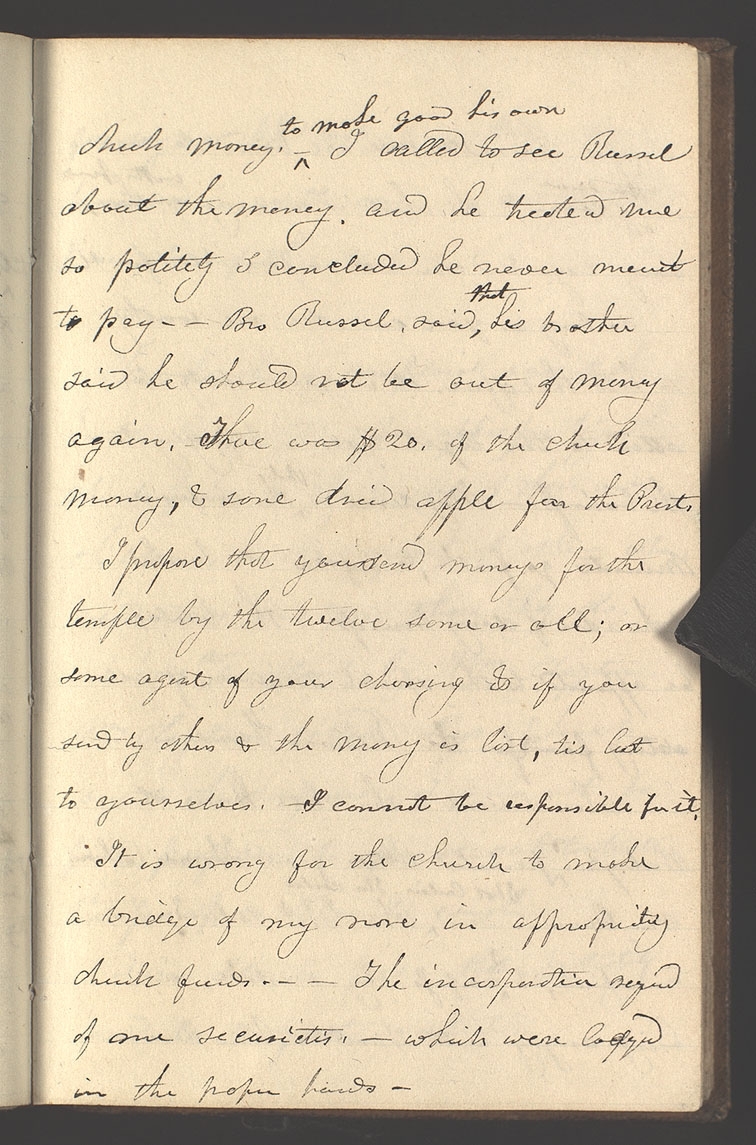 to make good his own
chuch money. – ^ I called to see Russel
about the money. and he treated me
so politely I concluded he never meant
to pay – – Bro Russel. said, that his brother
said he should not be out of money
again. There was $20. of the chuch
money, & some dried apple for the Prests
I propose that you send moneys for the
temple by the twelve some or all; or
some agent of your choosing & if you
send by others & the money is lost, tis lost
to yourselves. – I cannot be responsible for it.
It is wrong for the church to make
a bridge of my nose in appropriatig
chuch funds. – – The incorporation reqird
of me securities. – which were lodged
in the proper hands –